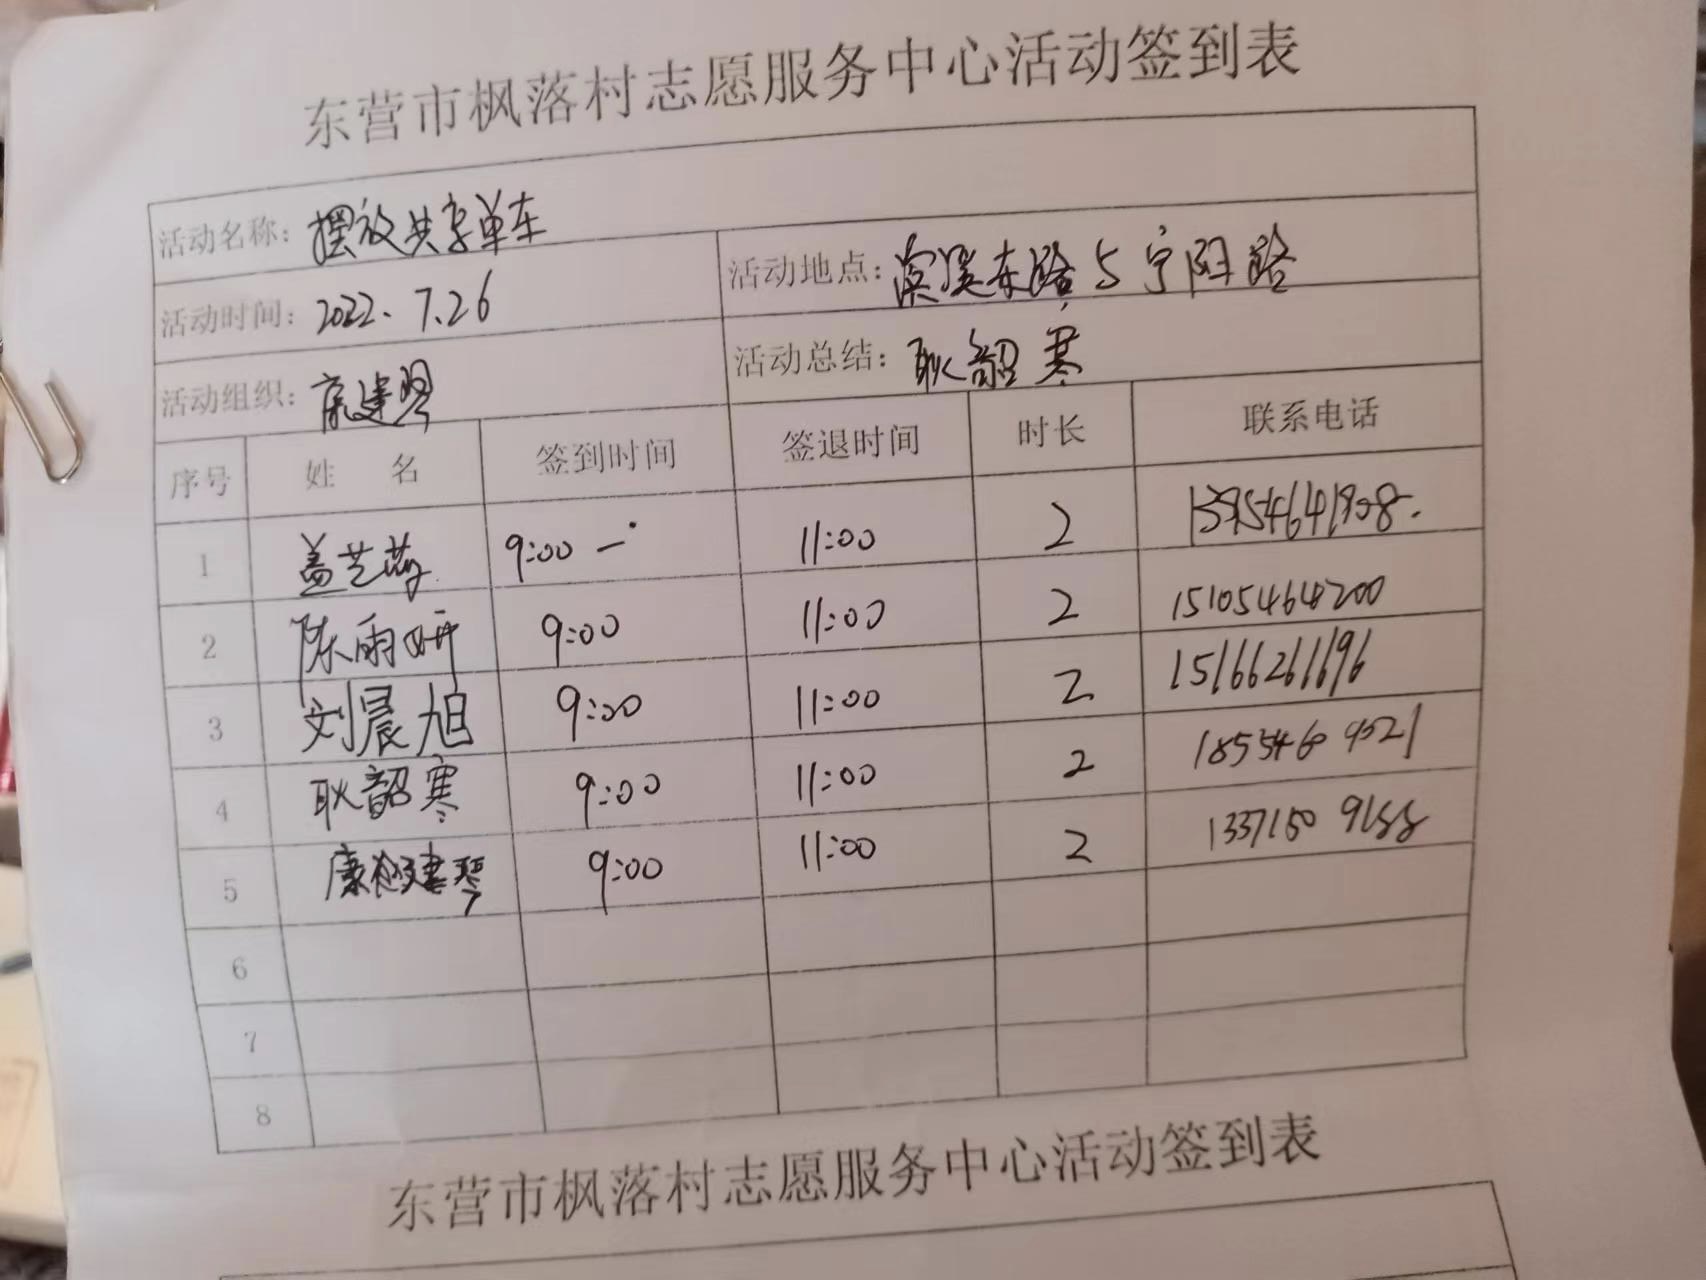 东营市枫落村志愿服务中心活动签到表
活动名称: 摆放共享单车
活动时间: 2022.7.26 活动地点: 东路与宁阳路
活动组织: 康建琴 活动总结: 耿韶寒
序号 姓 名 签到时间 签退时间 时长 联系电话
1 盖艺 9:00 — 11:00 2
2 陈雨妍 9:00 11:00 2 15105464200
3 刘晨旭 9:00 11:00 2 15166261696
4 耿韶寒 9:00 11:00 2
5 康建琴 9:00 11:00 2
6
7
8
东营市枫落村志愿服务中心活动签到表